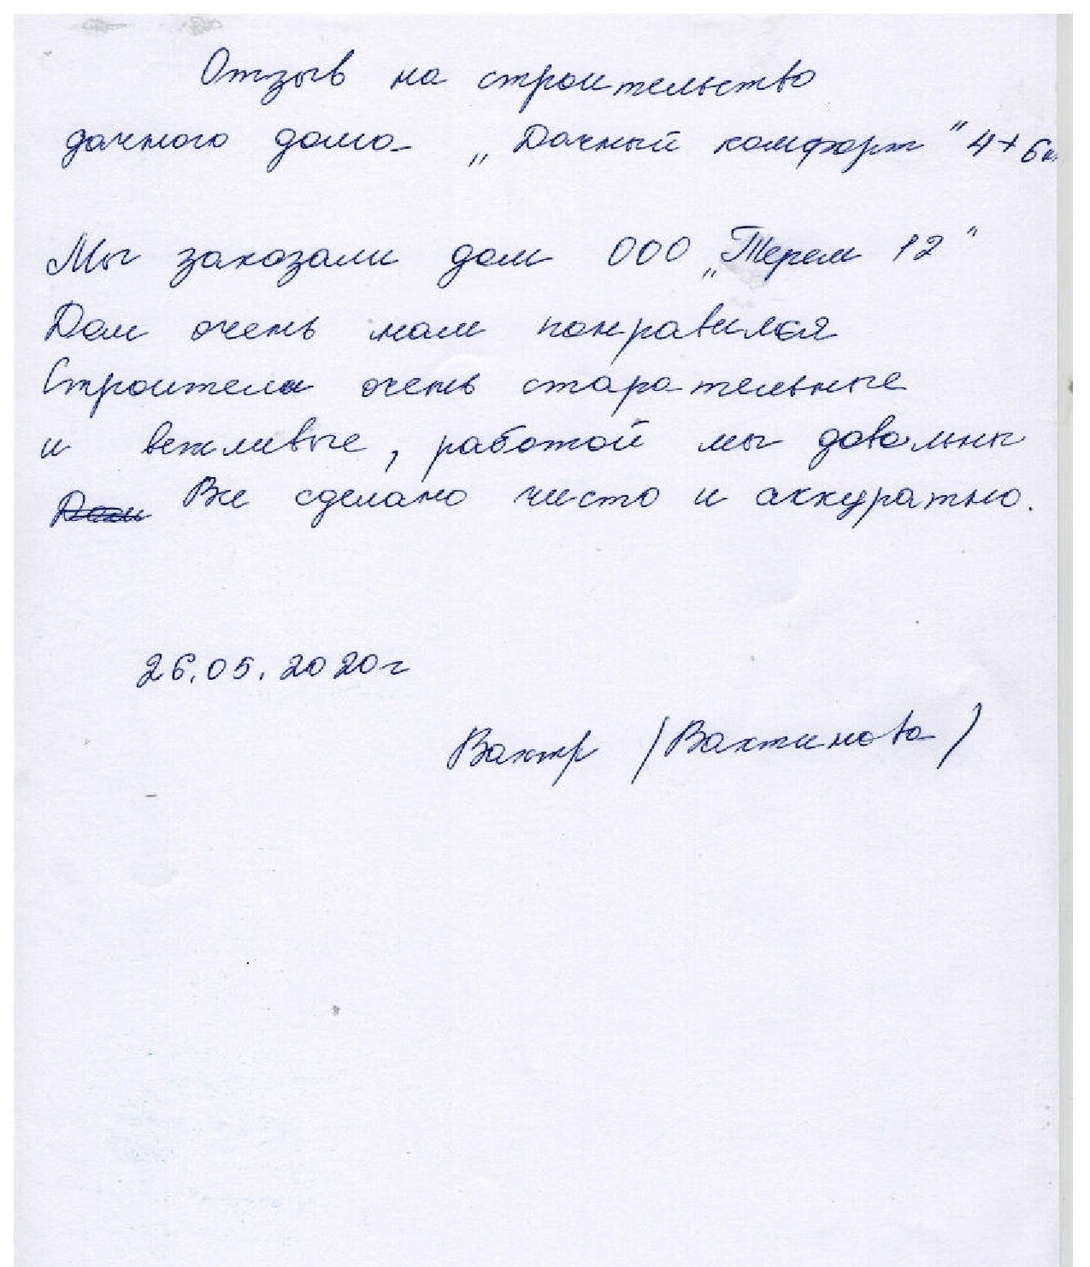 Отзыв на строительство
дачного дома „Дачный комфорт" 4×6м
Мы заказали дом ООО „Терем 12"
Дом очень нам понравился
Строители очень старательные
и вежливые, работой мы довольны
Дом Все сделано чисто и аккуратно.
26.05.2020г
(Вахтинова)